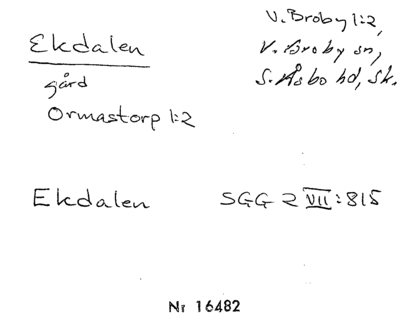 Ekdalen
gård
Ormastorp 1:2
V. Broby 1:2,
V. Broby sn,
S. Åsbo hd, Sk.
Ekdalen SGG 2 VII:815
Nr 16482